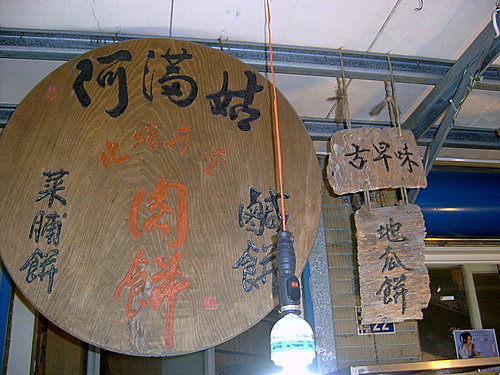 阿滿姑
肉餅
菜脯餅
鹹餅
古早味
地瓜餅
22